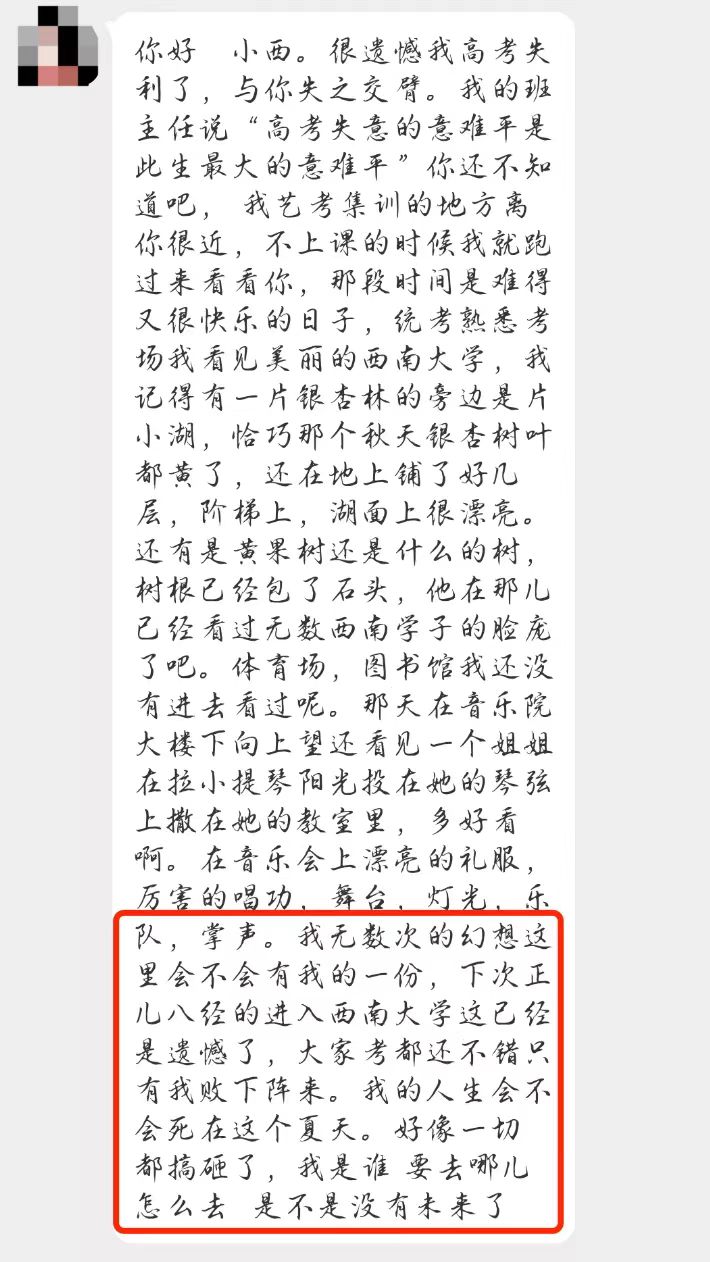 你好  小西。很遗憾我高考失
利了，与你失之交臂。我的班
主任说“高考失意的意难平是
此生最大的意难平”你还不知
道吧， 我艺考集训的地方离
你很近，不上课的时候我就跑
过来看看你，那段时间是难得
又很快乐的日子，统考熟悉考
场我看见美丽的西南大学，我
记得有一片银杏林的旁边是片
小湖，恰巧那个秋天银杏树叶
都黄了，还在地上铺了好几
层，阶梯上，湖面上很漂亮。
还有是黄果树还是什么的树，
树根已经包了石头，他在那儿
已经看过无数西南学子的脸庞
了吧。体育场，图书馆我还没
有进去看过呢。那天在音乐院
大楼下向上望还看见一个姐姐
在拉小提琴阳光投在她的琴弦
上撒在她的教室里，多好看
啊。在音乐会上漂亮的礼服，
厉害的唱功，舞台，灯光，乐
队，掌声。我无数次的幻想这
里会不会有我的一份，下次正
儿八经的进入西南大学这已经
是遗憾了，大家考都还不错只
有我败下阵来。我的人生会不
会死在这个夏天。好像一切
都搞砸了，我是谁 要去哪儿
怎么去  是不是没有未来了